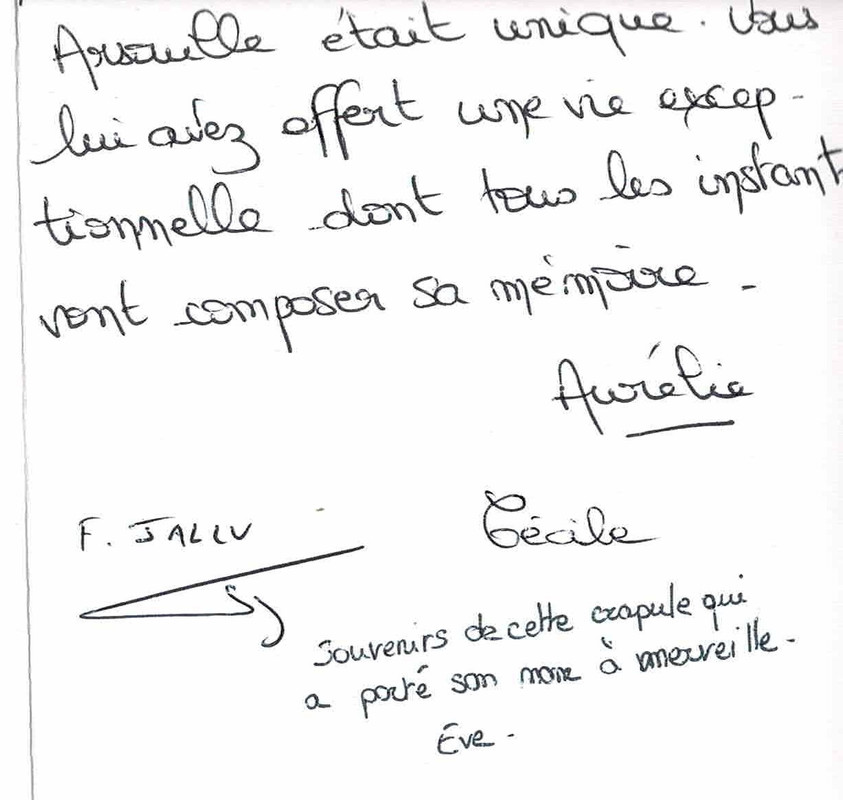 Arsouille était unique. Vous
lui avez offert une vie excep-
tionnelle dont tous les instant
vont composer sa mémoire -
Aurélie
F. JALLU
Cécile
Souvenirs de cette crapule qui
a porté son nom à merveille -
Ève -